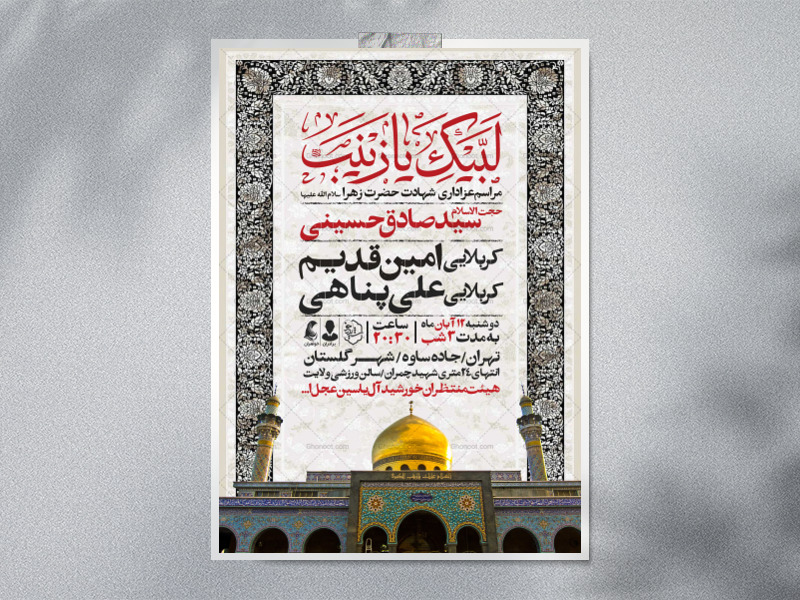 لبیک یا زینب
مراسم عزاداری شهادت حضرت زهرا سلام الله علیها
حجت الاسلام
سید صادق حسینی
کربلایی امین قدیم
کربلایی علی پناهی
دوشنبه ۱۲ آبان ماه
به مدت ۳ شب
ساعت
۲۰:۳۰
برادران خواهران
تهران/ جاده ساوه/ شهر گلستان
انتهای ۲۴ متری شهید چمران/ سالن ورزشی ولایت
هیئت منتظران خورشید آل یاسین عجل ا...
Ghoneot.com Ghoneot.com